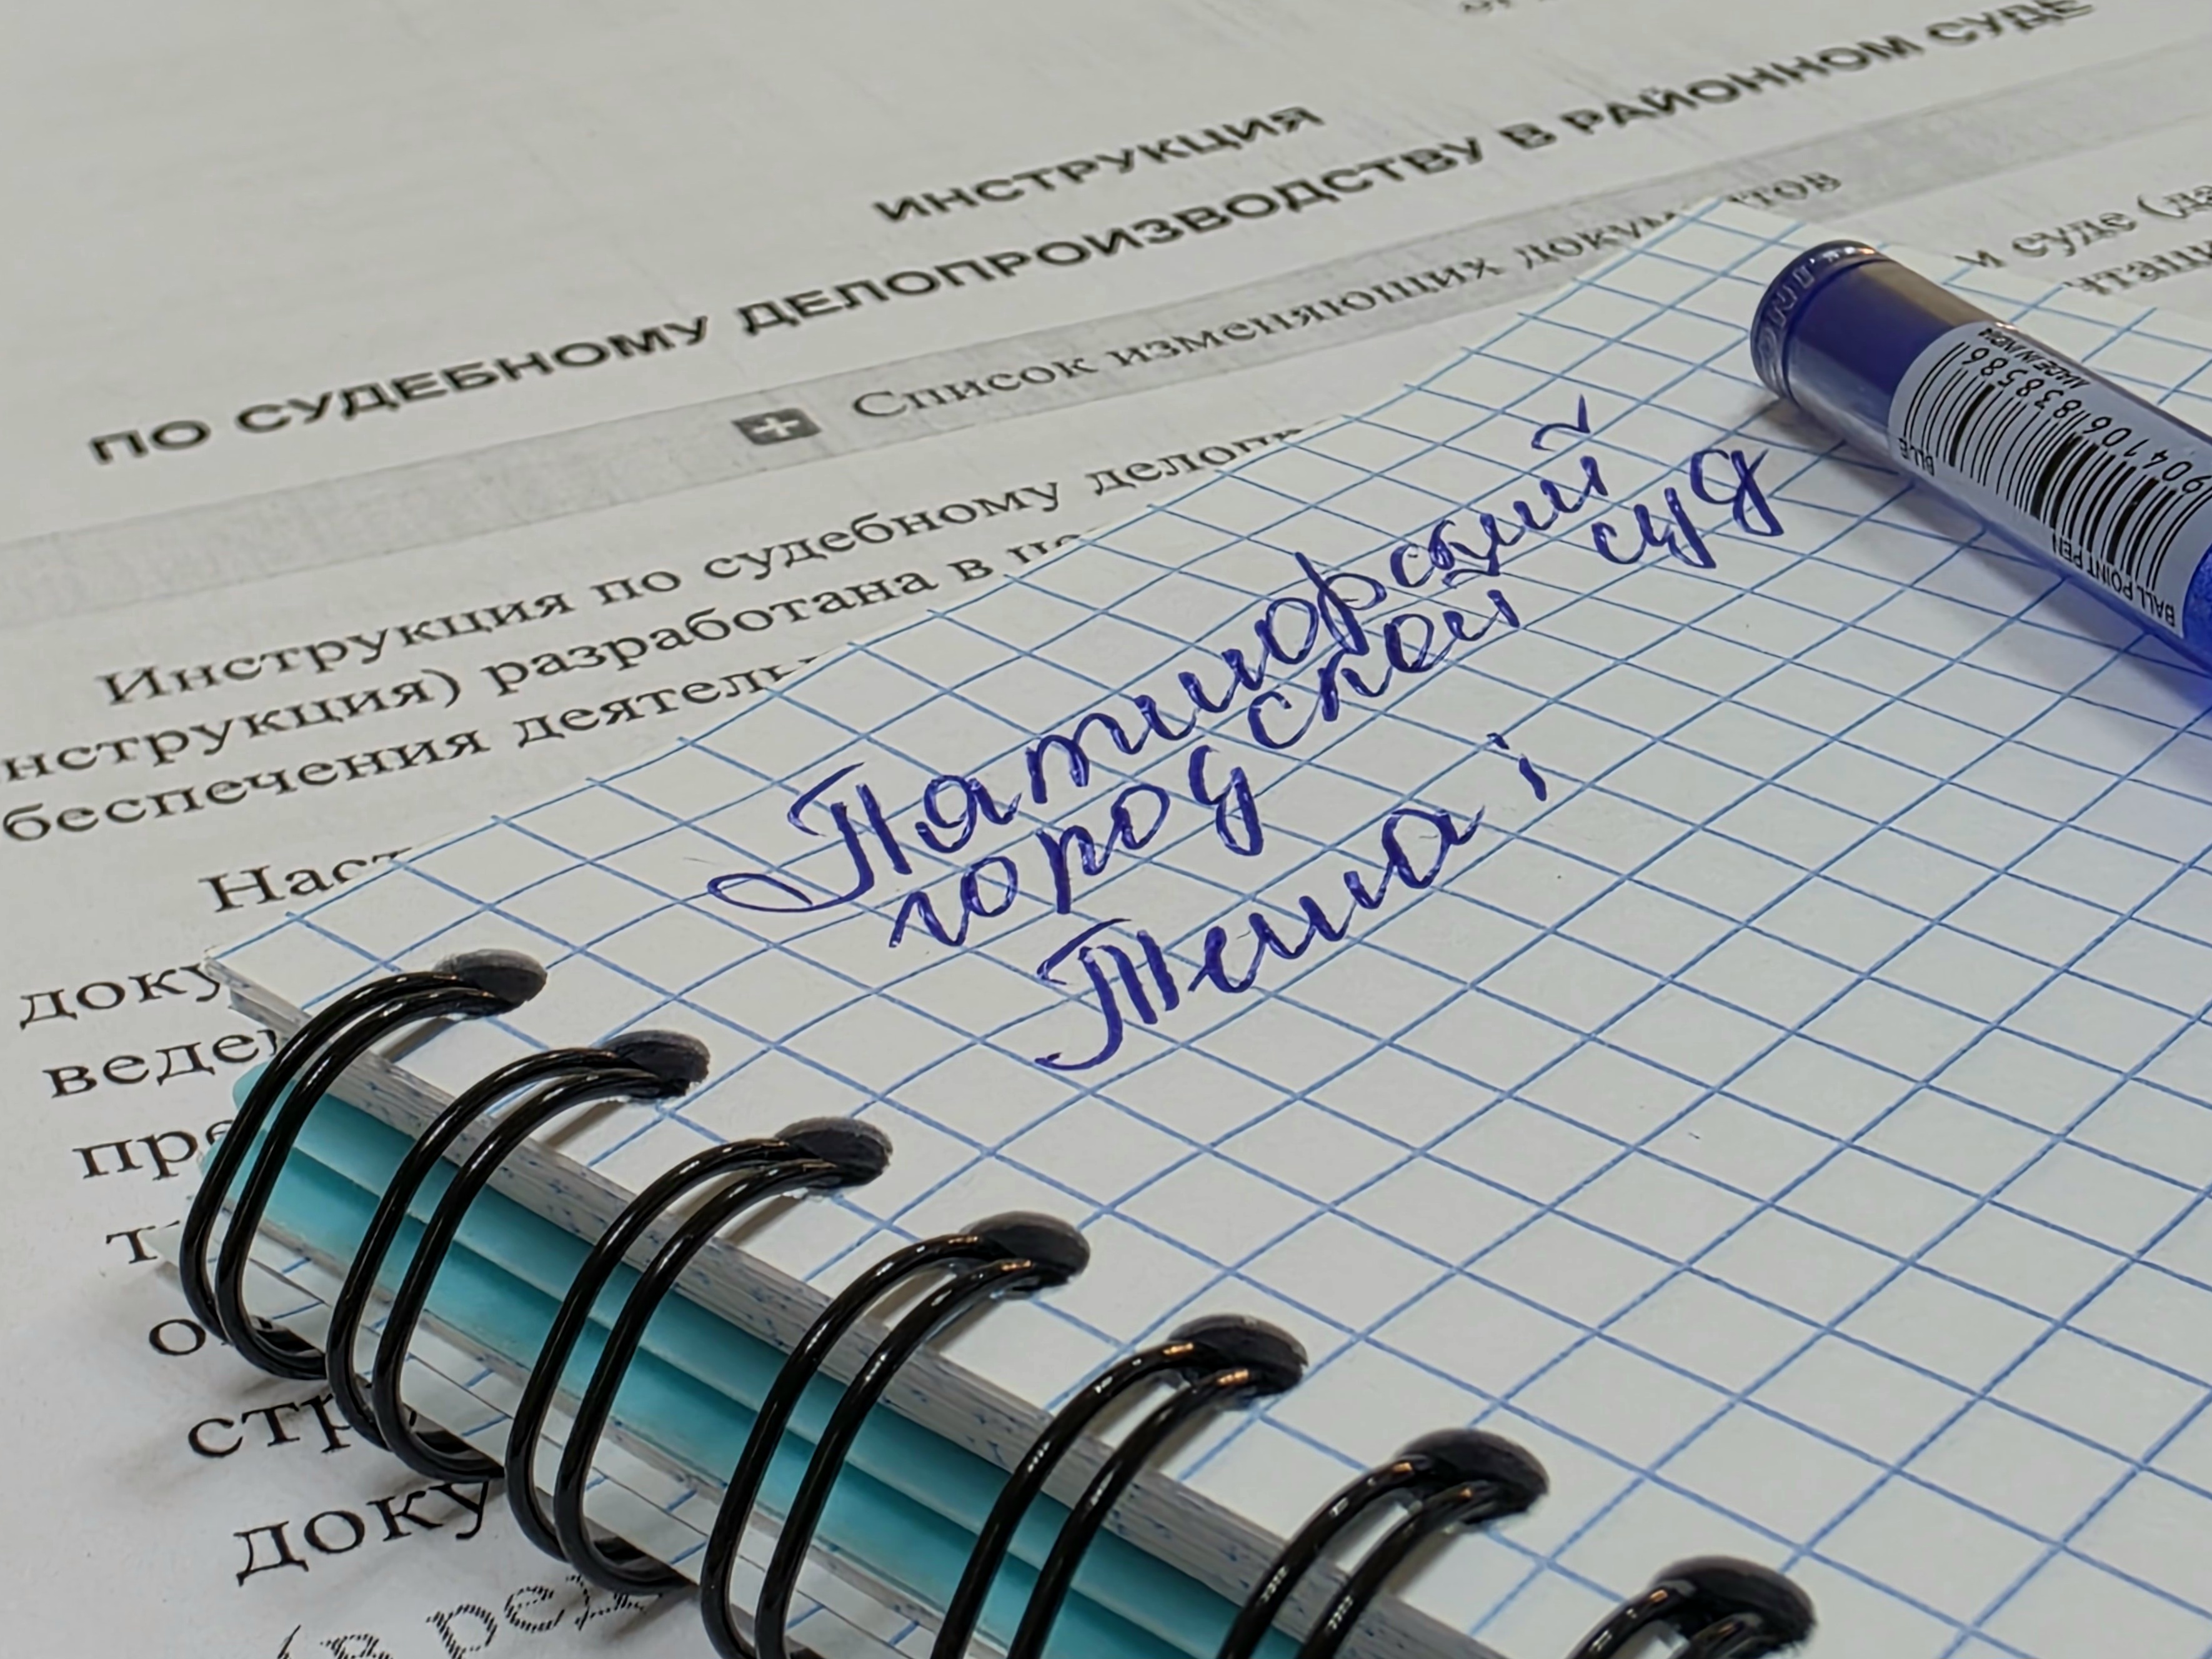 ИНСТРУКЦИЯ
ПО СУДЕБНОМУ ДЕЛОПРОИЗВОДСТВУ В РАЙОННОМ СУДЕ
Список изменяющих документов
Инструкция по судебному делопр
м суде (да
нструкция) разработана в це
нтаци
беспечения деятель
Наст
доку
веде
пре
т
о
стр
доку
(в ред
Пятигорский
городской суд
Тема:
BLUE
904106838586
MADE IN INDIA
BALL POINT PEN